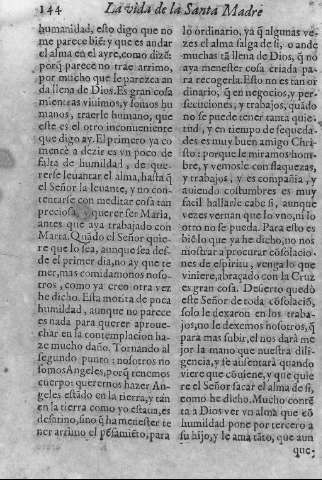 144 La vida de la Santa Madre
humanidad, esto digo que no
me parece biẽ: y que es andar
el alma en el ayre, como dizẽ:
porq̃ parece no trae arrimo,
por mucho que le parezca an-
da llena de Dios. Es gran cosa
mientras viuimos, y somos hu
manos, traerle humano, que
este es el otro inconueniente
que digo ay. El primero ya co
mencè a dezir es vn poco de
falta de humildad, de que-
rerse leuantar el alma, hasta q̃
el Señor la leuante, y no con-
tentarse con meditar cosa tan
preciosa, y querer ser Maria,
antes que aya trabajado con
Marta. Quãdo el Señor quie-
re que lo sea, aunque sea des-
de el primer dia, no ay que te
mer, mas comidamonos noso-
tros, como ya creo otra vez
he dicho. Esta motita de poca
humildad, aunque no parece
es nada para querer aproue-
char en la contemplacion ha-
ze mucho daño. Tornando al
segundo punto: nosotros no
somos Angeles, porq̃ tenemos
cuerpo: querernos hazer An-
geles estãdo en la tierra, y tan
en la tierra como yo estaua, es
desatino, sino q̃ ha menester te
ner arrimo el pẽsamiẽto, para
lo ordinario, ya q̃ algunas ve-
zes el alma salga de si, o ande
muchas tã llena de Dios, q̃ no
aya menester cosa criada pa-
ra recogerla. Esto no es tan or
dinario, q̃ en negocios, y per-
secuciones, y trabajos, quãdo
no se puede tener tanta quie-
tud, y en tiempo de sequeda-
des es muy buen amigo Chri-
sto: porque le miramos hom-
bre, y vemosle con flaquezas,
y trabajos, y es compañia, y
auiendo costumbres es muy
facil hallarle cabe si, aunque
vezes vernan que lo vno, ni lo
otro no se pueda. Para esto es
biẽ lo que ya he dicho, no nos
mostrar a procurar cõsolacio-
nes de espiritu, venga lo que
viniere, abraçado con la Cruz
es gran cosa. Desierto quedò
este Señor de toda cõsolaciõ,
solo le dexaron en los traba-
jos, no le dexemos nosotros, q̃
para mas subir, el nos darà me
jor la mano que nuestra dili-
gencia, y se ausentarà quando
viere que cõuiene, y que quie
re el Señor sacar el alma de si,
como he dicho. Mucho contẽ
ta a Dios ver vn alma que cõ
humildad pone por tercero a
su hijo, y le ama tãto, que aun
que